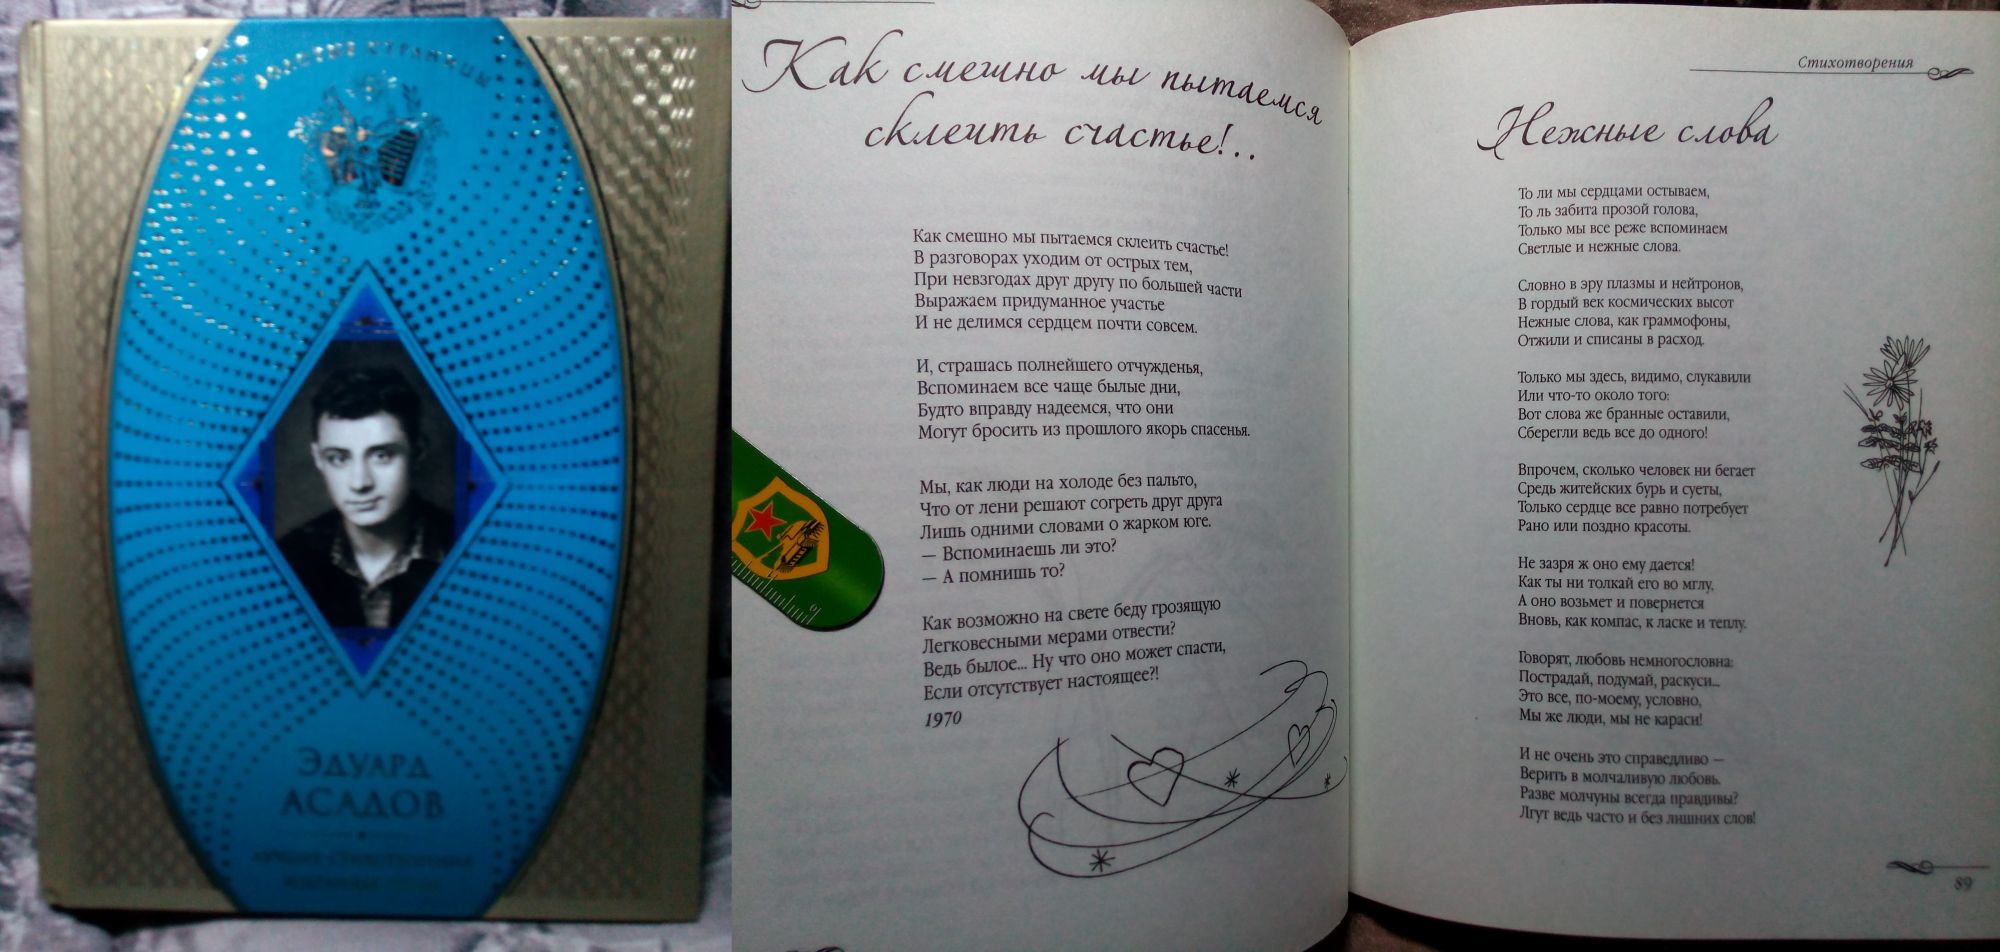 ЗОЛОТЫЕ СТРАНИЦЫ
ЭДУАРД
АСАДОВ
Как смешно мы пытаемся
склеить счастье!..
Как смешно мы пытаемся склеить счастье!
В разговорах уходим от острых тем,
При невзгодах друг другу по большей части
Выражаем придуманное участье
И не делимся сердцем почти совсем.
И, страшась полнейшего отчужденья,
Вспоминаем все чаще былые дни,
Будто вправду надеемся, что они
Могут бросить из прошлого якорь спасенья.
Мы, как люди на холоде без пальто,
Что от лени решают согреть друг друга
Лишь одними словами о жарком юге.
— Вспоминаешь ли это?
— А помнишь то?
Как возможно на свете беду грозящую
Легковесными мерами отвести?
Ведь былое... Ну что оно может спасти,
Если отсутствует настоящее?!
1970
Стихотворения
Нежные слова
То ли мы сердцами остываем,
То ль забита прозой голова,
Только мы все реже вспоминаем
Светлые и нежные слова.
Словно в эру плазмы и нейтронов,
В гордый век космических высот
Нежные слова, как граммофоны,
Отжили и списаны в расход.
Только мы здесь, видимо, слукавили
Или что-то около того:
Вот слова же бранные оставили,
Сберегли ведь все до одного!
Впрочем, сколько человек ни бегает
Средь житейских бурь и суеты,
Только сердце все равно потребует
Рано или поздно красоты.
Не зазря ж оно ему дается!
Как ты ни толкай его во мглу,
А оно возьмет и повернется
Вновь, как компас, к ласке и теплу.
Говорят, любовь немногословна:
Пострадай, подумай, раскуси...
Это все, по-моему, условно,
Мы же люди, мы не караси!
И не очень это справедливо —
Верить в молчаливую любовь.
Разве молчуны всегда правдивы?
Лгут ведь часто и без лишних слов!
89